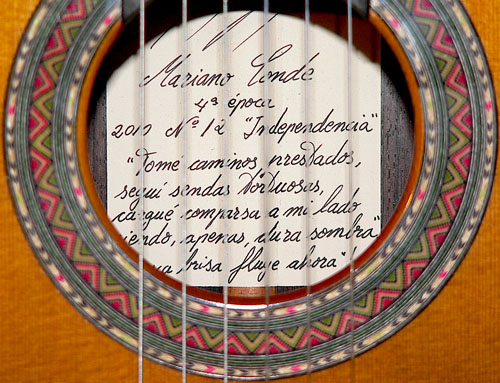 Mariano Conde
4ª época
2010 Nº 12 "Independencia"
"Tomé caminos prestados,
seguí sendas tortuosas,
cargué comparsa a mi lado
siendo, apenas, dura sombra
brisa fluye ahora"